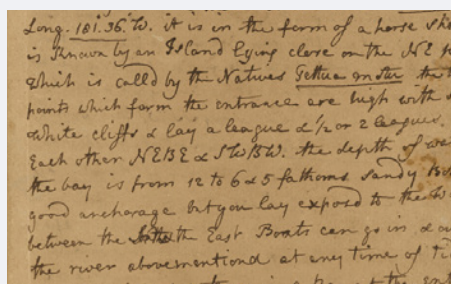 Long. 181°.36'. W. it is in the form of a horse sho
is known by an Island lying close on the NE p
which is call'd by the Natives Tettua motu the
points which form the entrance are high with
white cliffs & lay a league & 1/2 or 2 leagues
Each other NEBE & SWBW. the depth of wa
the bay is from 12 to 6 & 5 fathoms sandy Bot
good anchorage but you lay exposed to the W
between the South & the East Boats can go in & ou
the river abovementiond at any time of ti